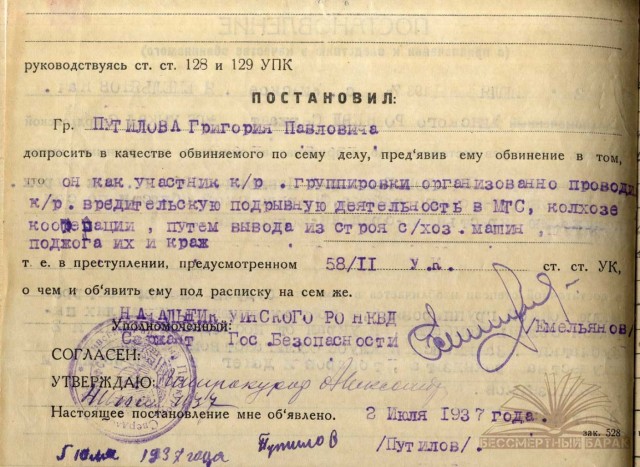 руководствуясь ст. ст. 128 и 129 УПК
ПОСТАНОВИЛ:
Гр. ПУТИЛОВА Григория Павловича
допросить в качестве обвиняемого по сему делу, пред'явив ему обвинение в том,
что он как участник к/р . группировки организованно проводи
к/р. вредительскую подрывную деятельность в МТС, колхозе
кооперации , путем вывода из строя с/хоз. машин ,
поджога их и краж
т. е. в преступлении, предусмотренном 58/II У.К. ст. ст. УК,
о чем и об'явить ему под расписку на сем же.
НАЧАЛЬНИК УИНСКОГО РО НКВД
Уполномоченный:
Сержант Гос. Безопасности /Емельянов/
СОГЛАСЕН:
УТВЕРЖДАЮ:
Настоящее постановление мне об'явлено. 2 Июля 1937 года.
зак. 528
5 июля 1937 года Путилов /Путилов/.
БЕССМЕРТНЫЙ БАРАК